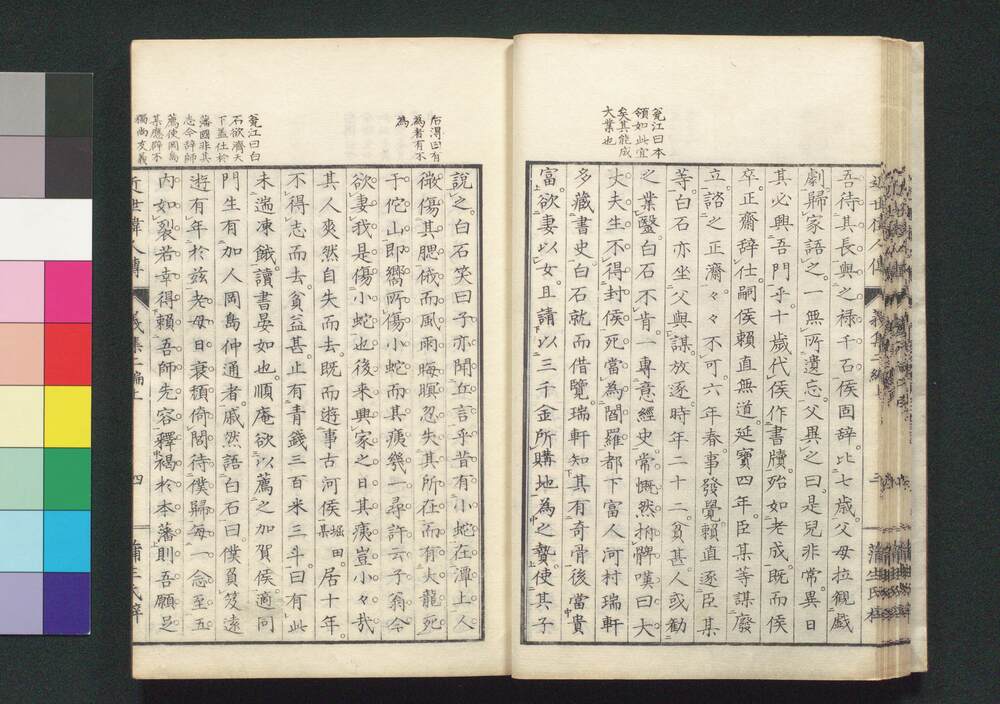 寃江曰本
領如此宜
矣其能成
大業也
吾待其長與之祿千石侯固辞比七歲父母拉觀戯
劇歸家語之一無所遺忘父異之曰是兒非常異日
其必興吾門乎十歲代侯作書牘殆如老成既而侯
卒正齋辞仕嗣侯賴直無道延寶四年臣某等謀廢
立諮之正齋々々不可六年春事發覺賴直逐臣某
等白石亦坐父與謀放逐時年二十二貧甚人或勸
之業醫白石不肯一專意經史常慨然拊髀嘆曰大
丈夫生不得封侯死當為閻羅都下富人河村瑞軒
多藏書史白石就而借覽瑞軒知其有奇骨後當貴
富欲妻以女且請以三千金所購地為之贄使其子
右淂曰有
為者有不
為
說之白石笑曰子亦聞丘言乎昔有小蛇在潭上人
微傷其腮俄而風雨晦暝忽失其所在而有大龍死
于佗山即嚮所傷小蛇而其痍幾一尋許云子翁今
欲妻我是傷小蛇也後来興家之日其痍豈小々哉
其人爽然自失而去既而遊事古河侯堀田某居十年
不得志而去貧益甚止有青錢三百米三斗曰有此
未遄凍餓讀書晏如也順庵欲以薦之加賀侯適同
門生有加人岡島仲通者戚然語白石曰僕負笈遠
遊有年於兹老母日衰頹倚閭待僕歸每一念至五
內如裂若幸得賴吾師先容釋褐於本藩則吾願足
寃江曰白
石欲濟天
下蓋仕於
藩國非其
志今辞師
薦使岡島
某應辟不
獨尚友義
近世偉人傳 義集二編上 四 蒲生氏梓